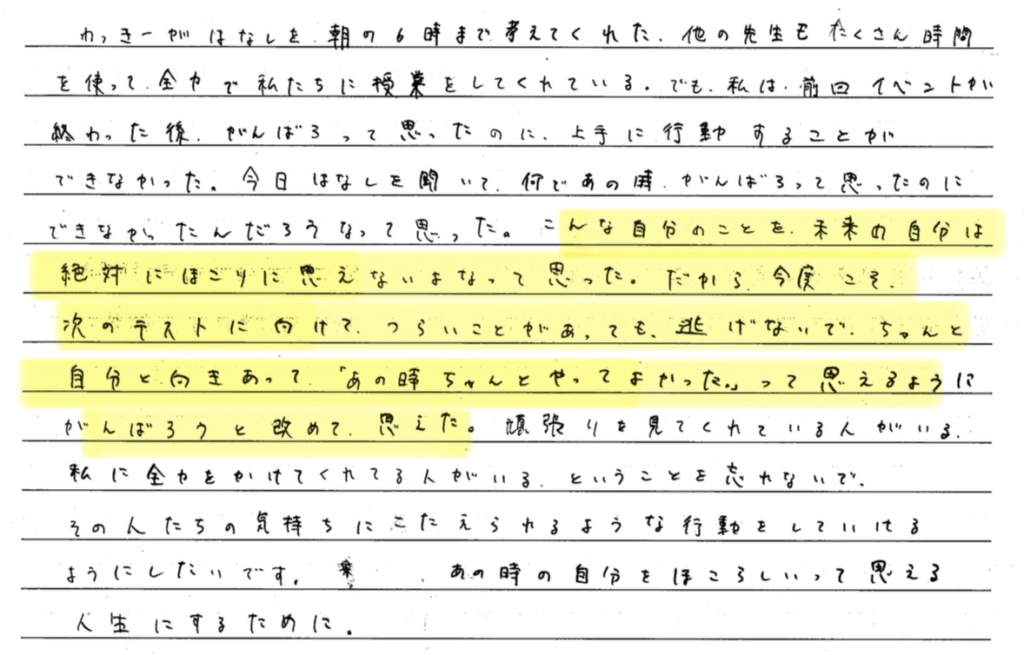 わっきーがはなしを、朝の6時まで考えてくれた、他の先生もたくさん時間
を使って、全力で私たちに授業をしてくれている。でも、私は、前回イベントが
終わった後、がんばろって思ったのに、上手に行動することが
できなかった。今日はなしを聞いて、何であの時、がんばろって思ったのに
できなかったんだろうなって思った。こんな自分のことを、未来の自分は
絶対にほこりに思えないよなって思った。だから、今度こそ、
次のテストに向けて、つらいことがあっても、逃げないで、ちゃんと
自分と向きあって、「あの時ちゃんとやってよかった。」って思えるように
がんばろうと改めて、思えた。頑張りを見てくれている人がいる、
私に全力をかけてくれてる人がいる、ということを忘れないで、
その人たちの気持ちにこたえられるような行動をしていける
ようにしたいです。あの時の自分をほころしいって思える
人生にするために。